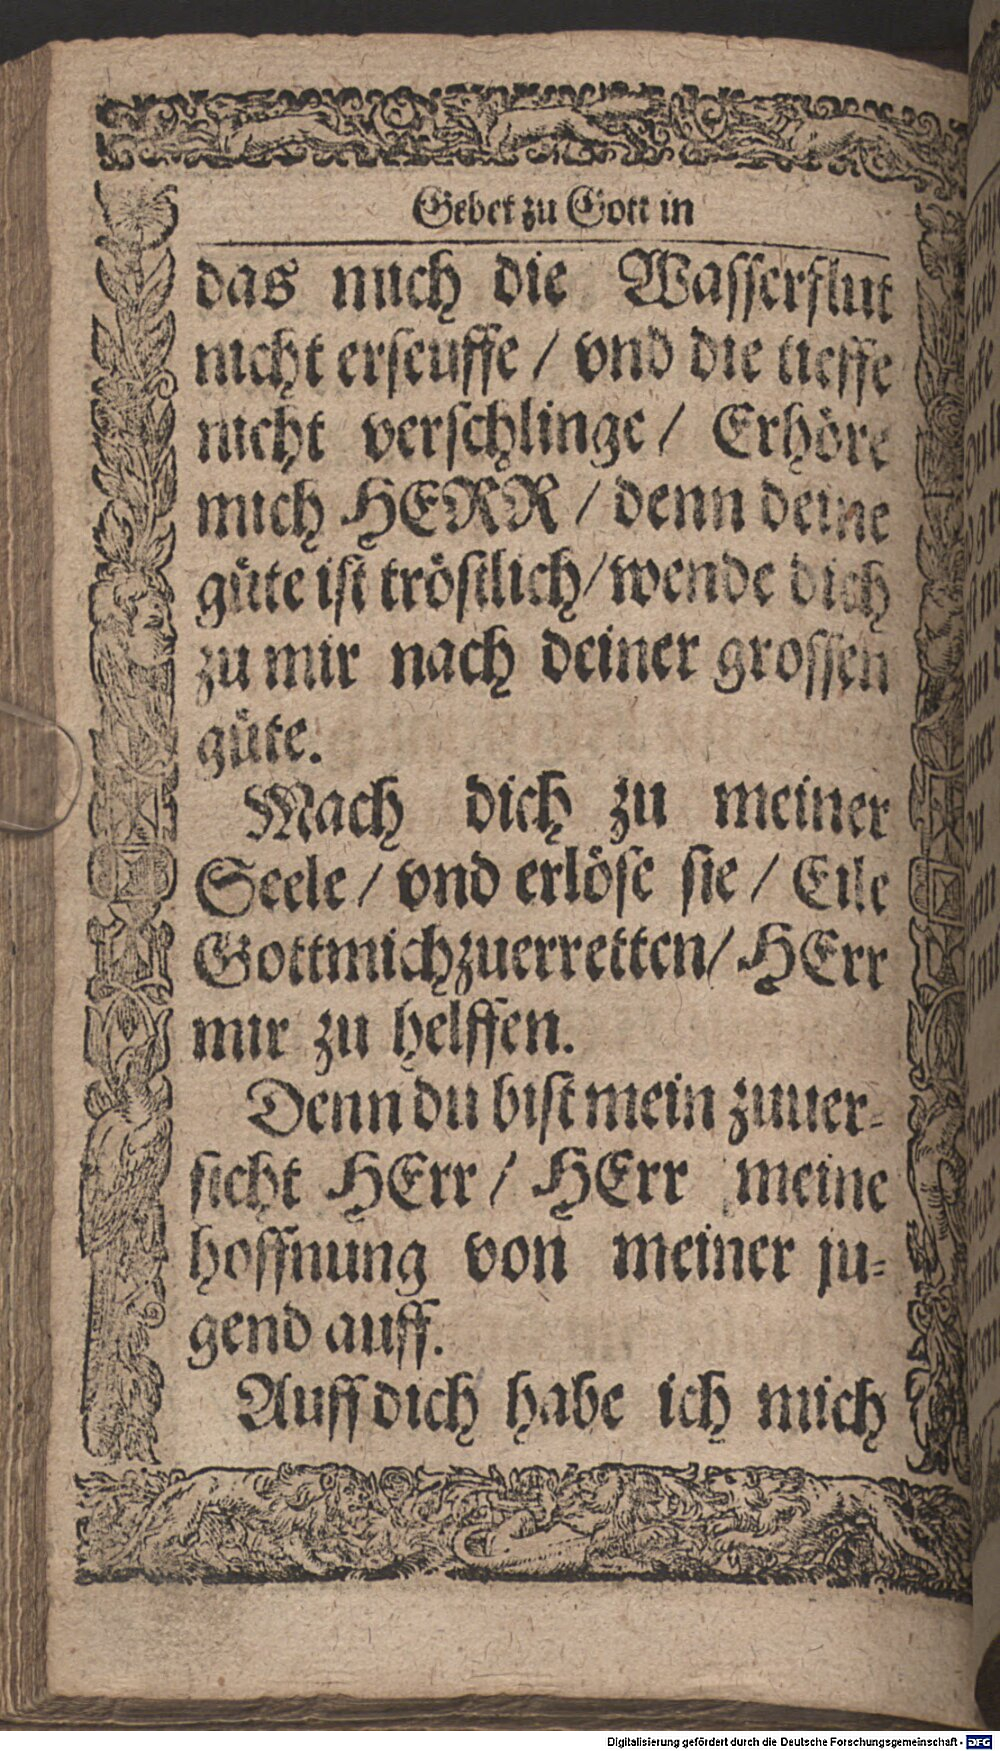 Gebet zu Gott in
das mich die Wasserflut
nicht erseuffe / vnd die tieffe
nicht verschlinge / Erhöre
mich HERR / denn deine
güte ist tröstlich / wende dich
zu mir nach deiner grossen
güte.
Mach dich zu meiner
Seele / vnd erlöse sie / Eile
Gott mich zu erretten / HErr
mir zu helffen.
Denn du bist mein zuuer-
sicht HErr / HErr meine
hoffnung von meiner ju-
gend auff.
Auff dich habe ich mich
Digitalisierung gefördert durch die Deutsche Forschungsgemeinschaft - DFG